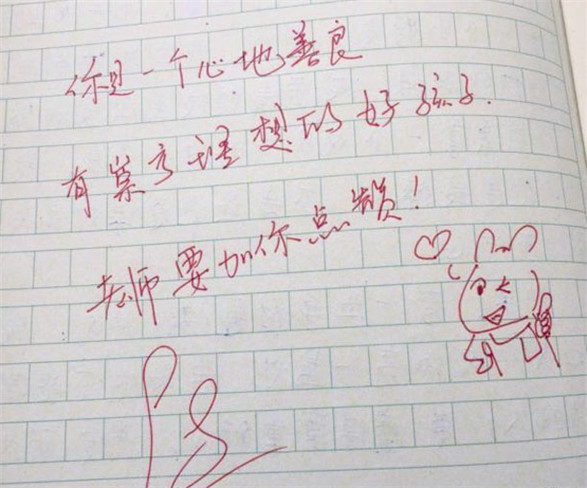 你是一个心地善良
有崇高理想的好孩子.
老师要给你点赞!